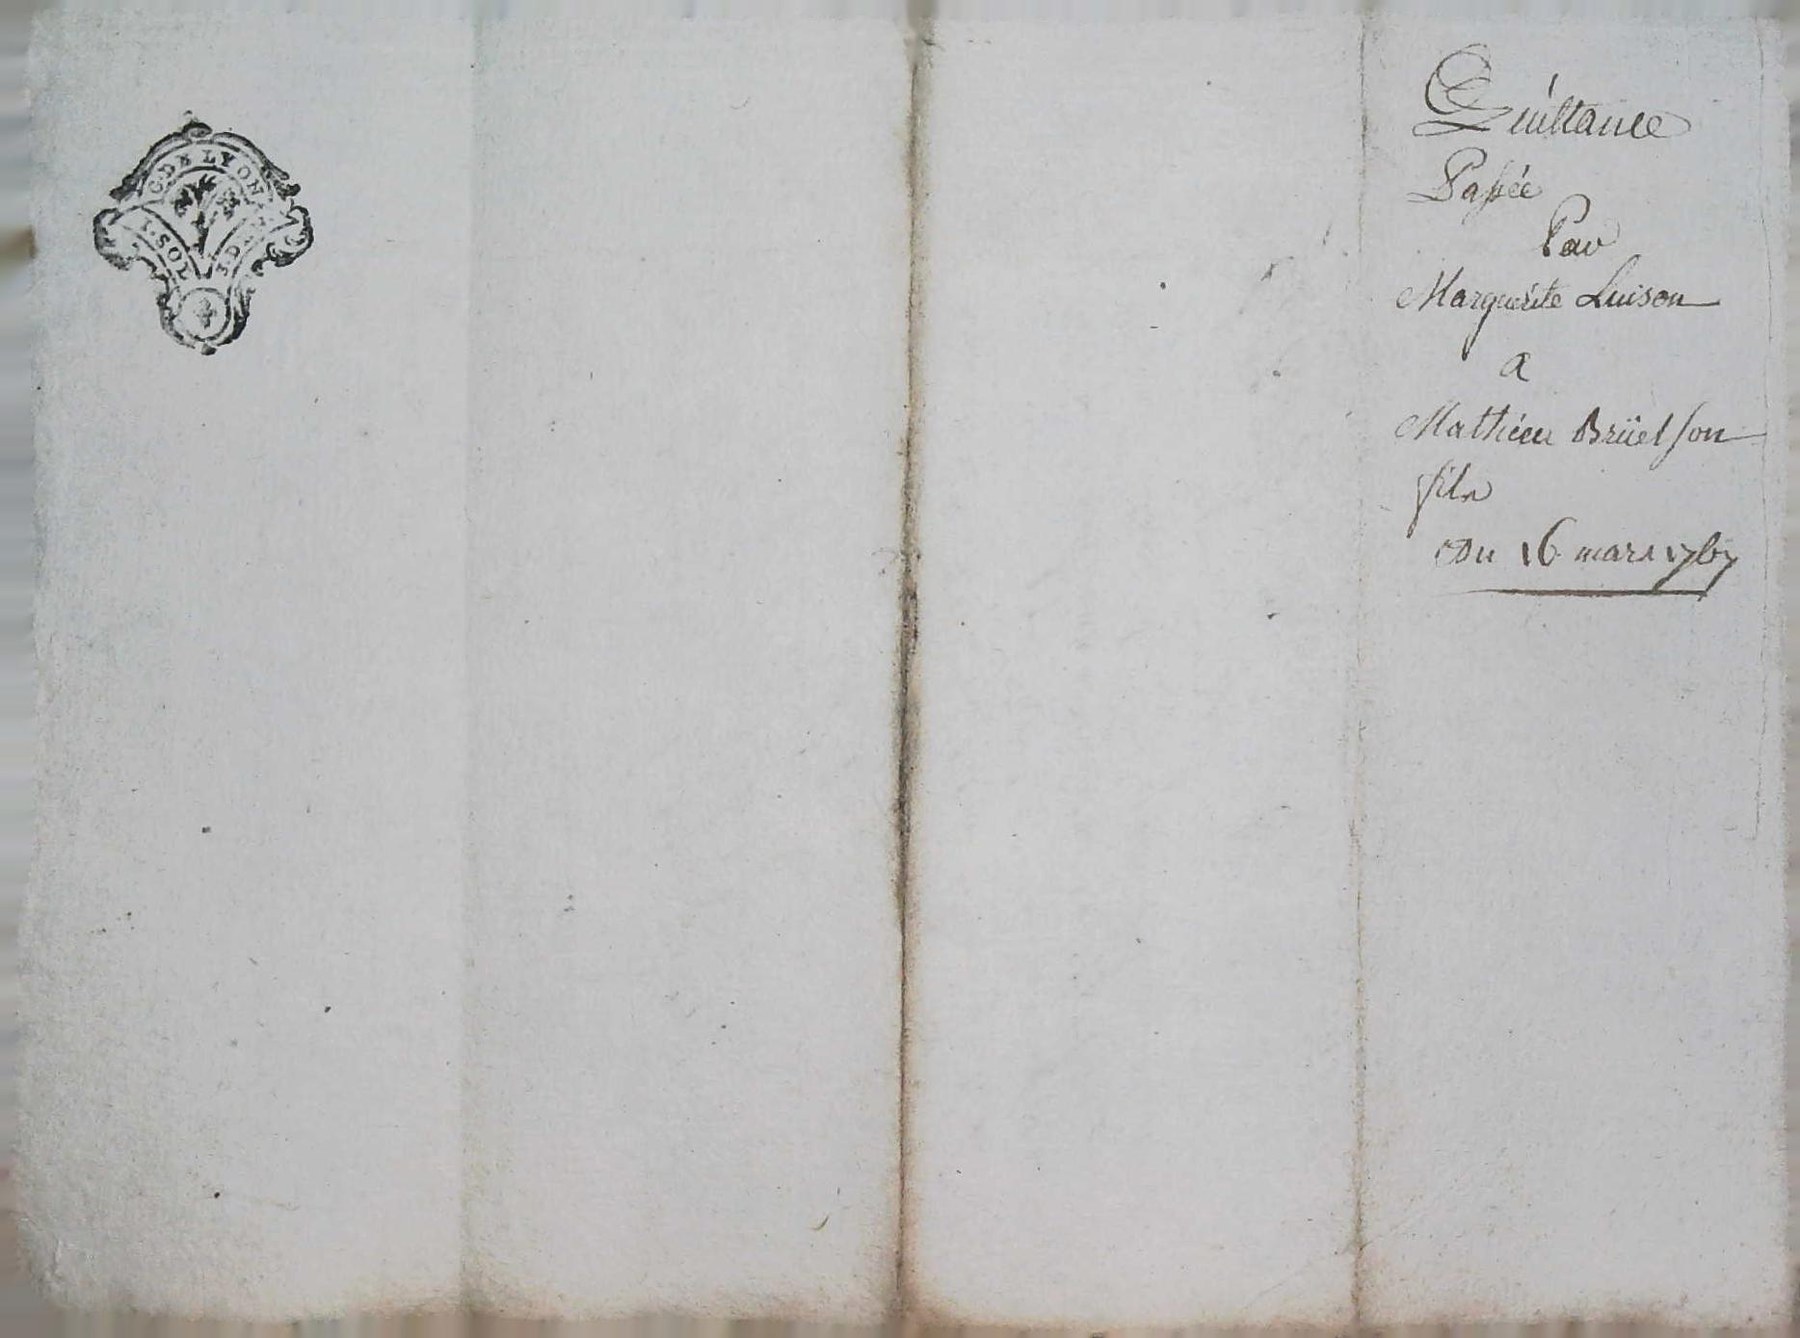 G. DE LYON
I. SOL
Quittance
Passée
Par
Marguerite Luison
a
Mathieu Brüel son
fils
Du 16 mars 1767